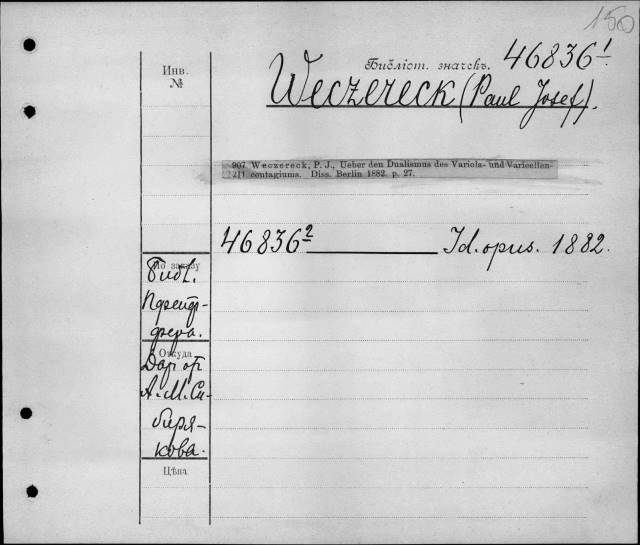 150
Библіот. значекъ. 46836¹
Инв.
№
Weczereck (Paul Josef).
907 Weczereck, P. J., Ueber den Dualismus des Variola- und Varicellen-
contagiums. Diss. Berlin 1882. p. 27.
46836² Id. opus. 1882.
По заказу
Библ.
Пфейф-
фера.
Откуда
Дар от
А. М. Си-
биря-
кова.
Цѣна